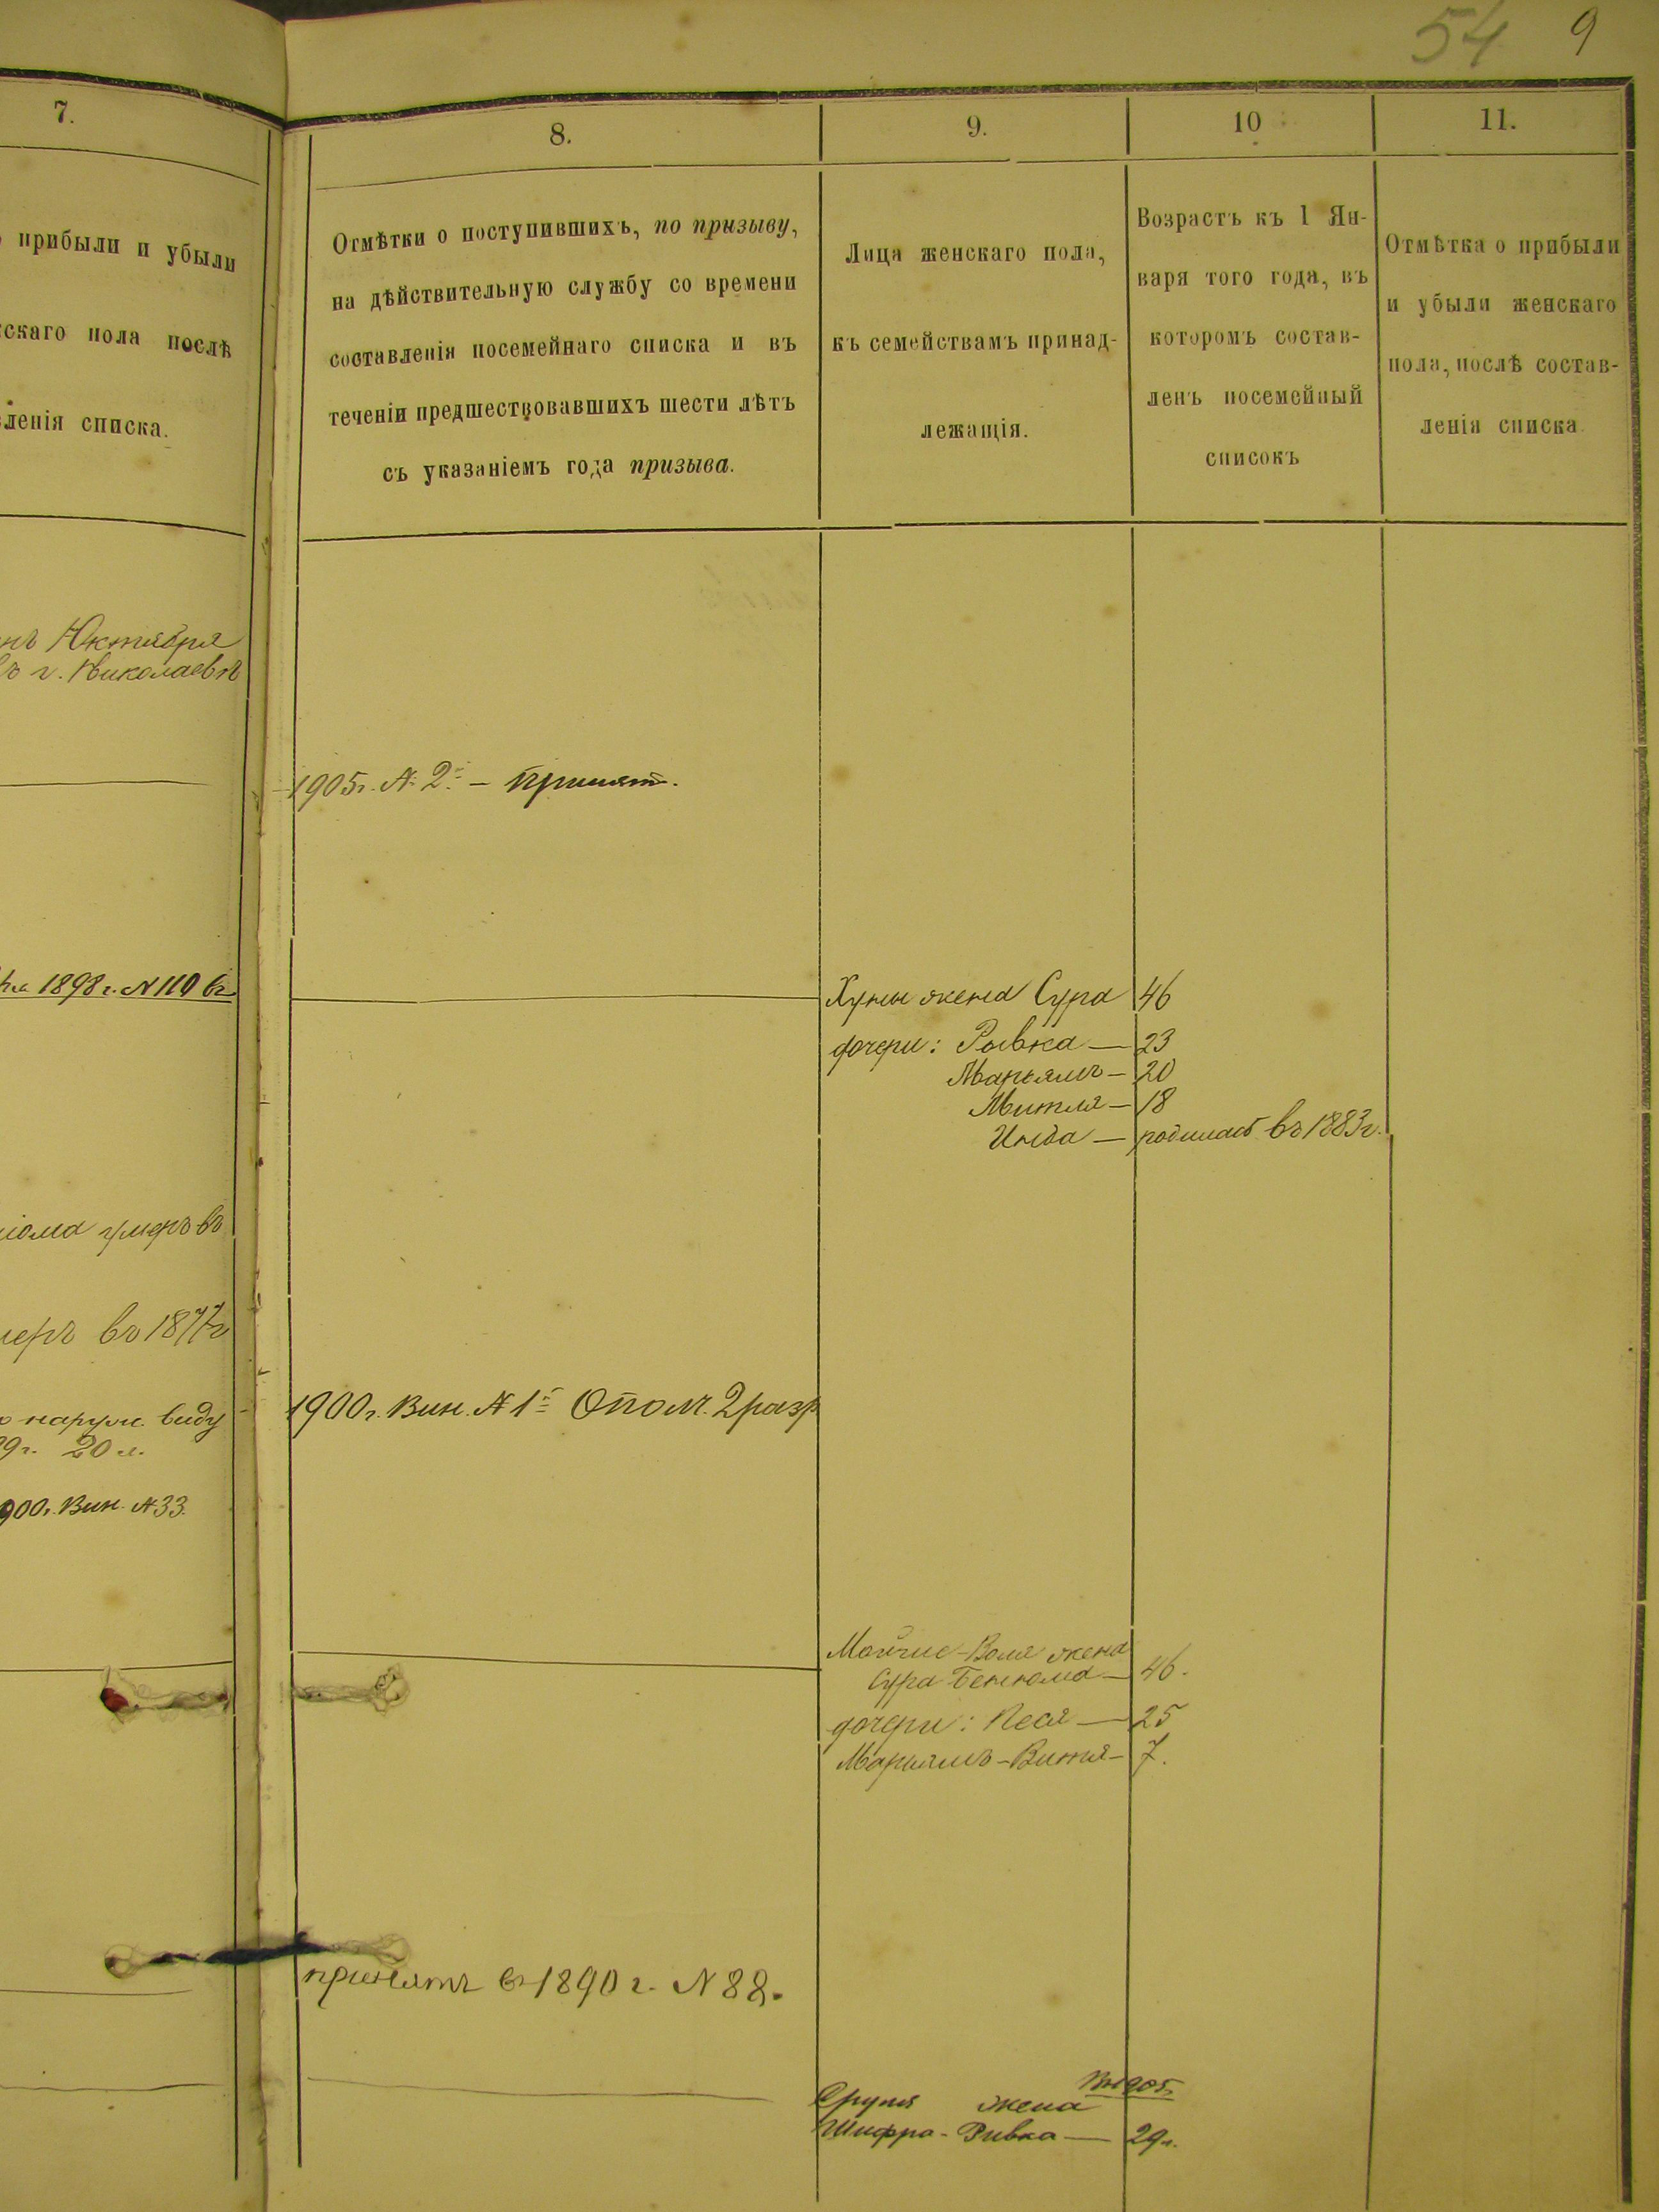 54 9
7.
8.
9.
10
11.
прибыли и убыли
скаго пола послѣ
вленія списка.
Отмѣтки о поступившихъ, по призыву,
на дѣйствительную службу со времени
составленія посемейнаго списка и въ
теченіи предшествовавшихъ шести лѣтъ
съ указаніемъ года призыва.
Лица женскаго пола,
къ семействамъ принад-
лежащія.
Возрастъ къ 1 Ян-
варя того года, въ
которомъ состав-
ленъ посемейный
списокъ
Отмѣтка о прибыли
и убыли женскаго
пола, послѣ состав-
ленія списка
Октября
г. Николаевѣ
1905г. № 2й – принят.
1898 г. № 110
Хуны жена Сура 46
дочери: Рывка — 23
Марьямъ – 20
Митля – 18
Инда — родилась въ 1883г.
умеръ въ
меръ въ 1877г
наруж. виду
9г. 20 л.
1900 г. Вин. № 1й Ополч. 2 разр
900г. Вин. № 33.
жена
Сура 46.
дочери: Песя — 25
Марьямъ-Витя – 7.
принятъ въ 1890 г. № 88.
жена
Шифра-Ривка — 29л.